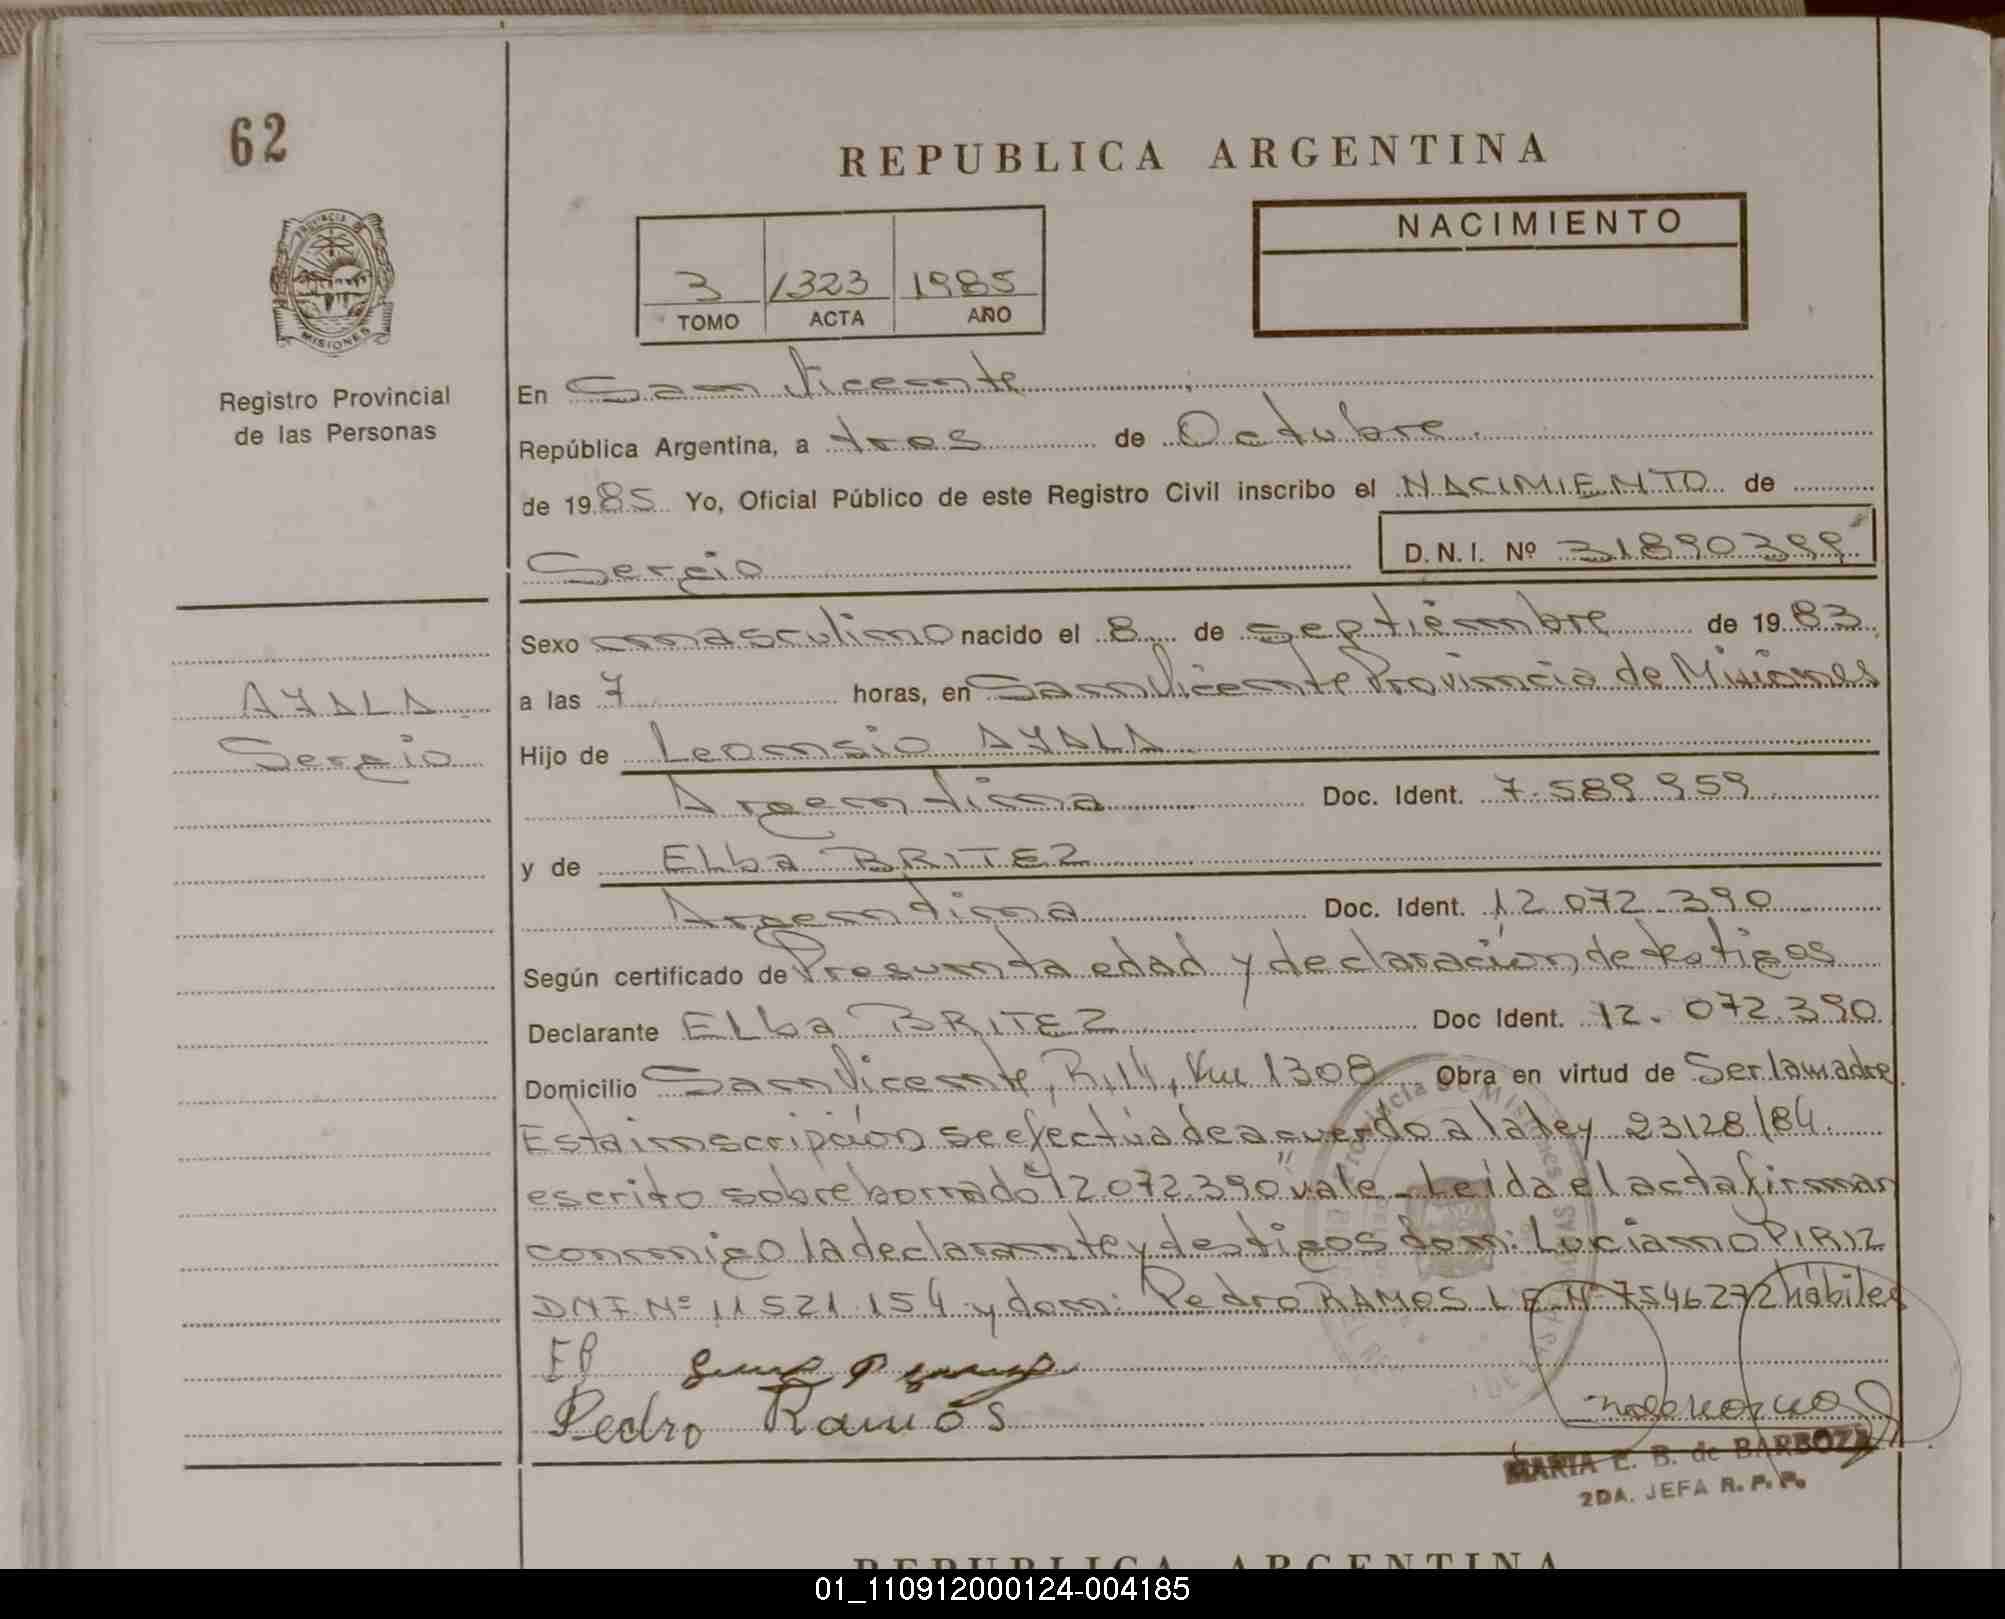 62
REPUBLICA ARGENTINA
NACIMIENTO
3 1323 1985
TOMO ACTA AÑO
PROVINCIA DE
MISIONES
Registro Provincial
de las Personas
En San Vicente
República Argentina, a tres de Octubre
de 1985 Yo, Oficial Público de este Registro Civil inscribo el NACIMIENTO de
Sergio D.N.I. Nº 31890399
AYALA
Sergio
Sexo masculino nacido el 8 de septiembre de 1983
a las 7 horas, en San Vicente Provincia de Misiones
Hijo de Leonsio AYALA
Argentina Doc. Ident. 7.589.959
y de ELba BRITEZ
Argentina Doc. Ident. 12.072.390
Según certificado de Presunta edad y declaración de testigos
Declarante ELba BRITEZ Doc Ident. 12.072.390
Domicilio San Vicente, R.14, Km 1308 Obra en virtud de Ser la madre.
Esta inscripción se efectúa de acuerdo a la ley 23128/84.
escrito sobre borrado "12.072.390" vale - Leída el acta firman
conmigo la declarante y testigos don: Luciano PIRIZ
DNI Nº 11521.154 y don: Pedro RAMOS L.E. Nº 7546272 hábiles
EB
Pedro Ramos
MARIA E. B. de BARBOZA
2DA. JEFA R. P. P.
REPUBLICA ARGENTINA
01_110912000124-004185